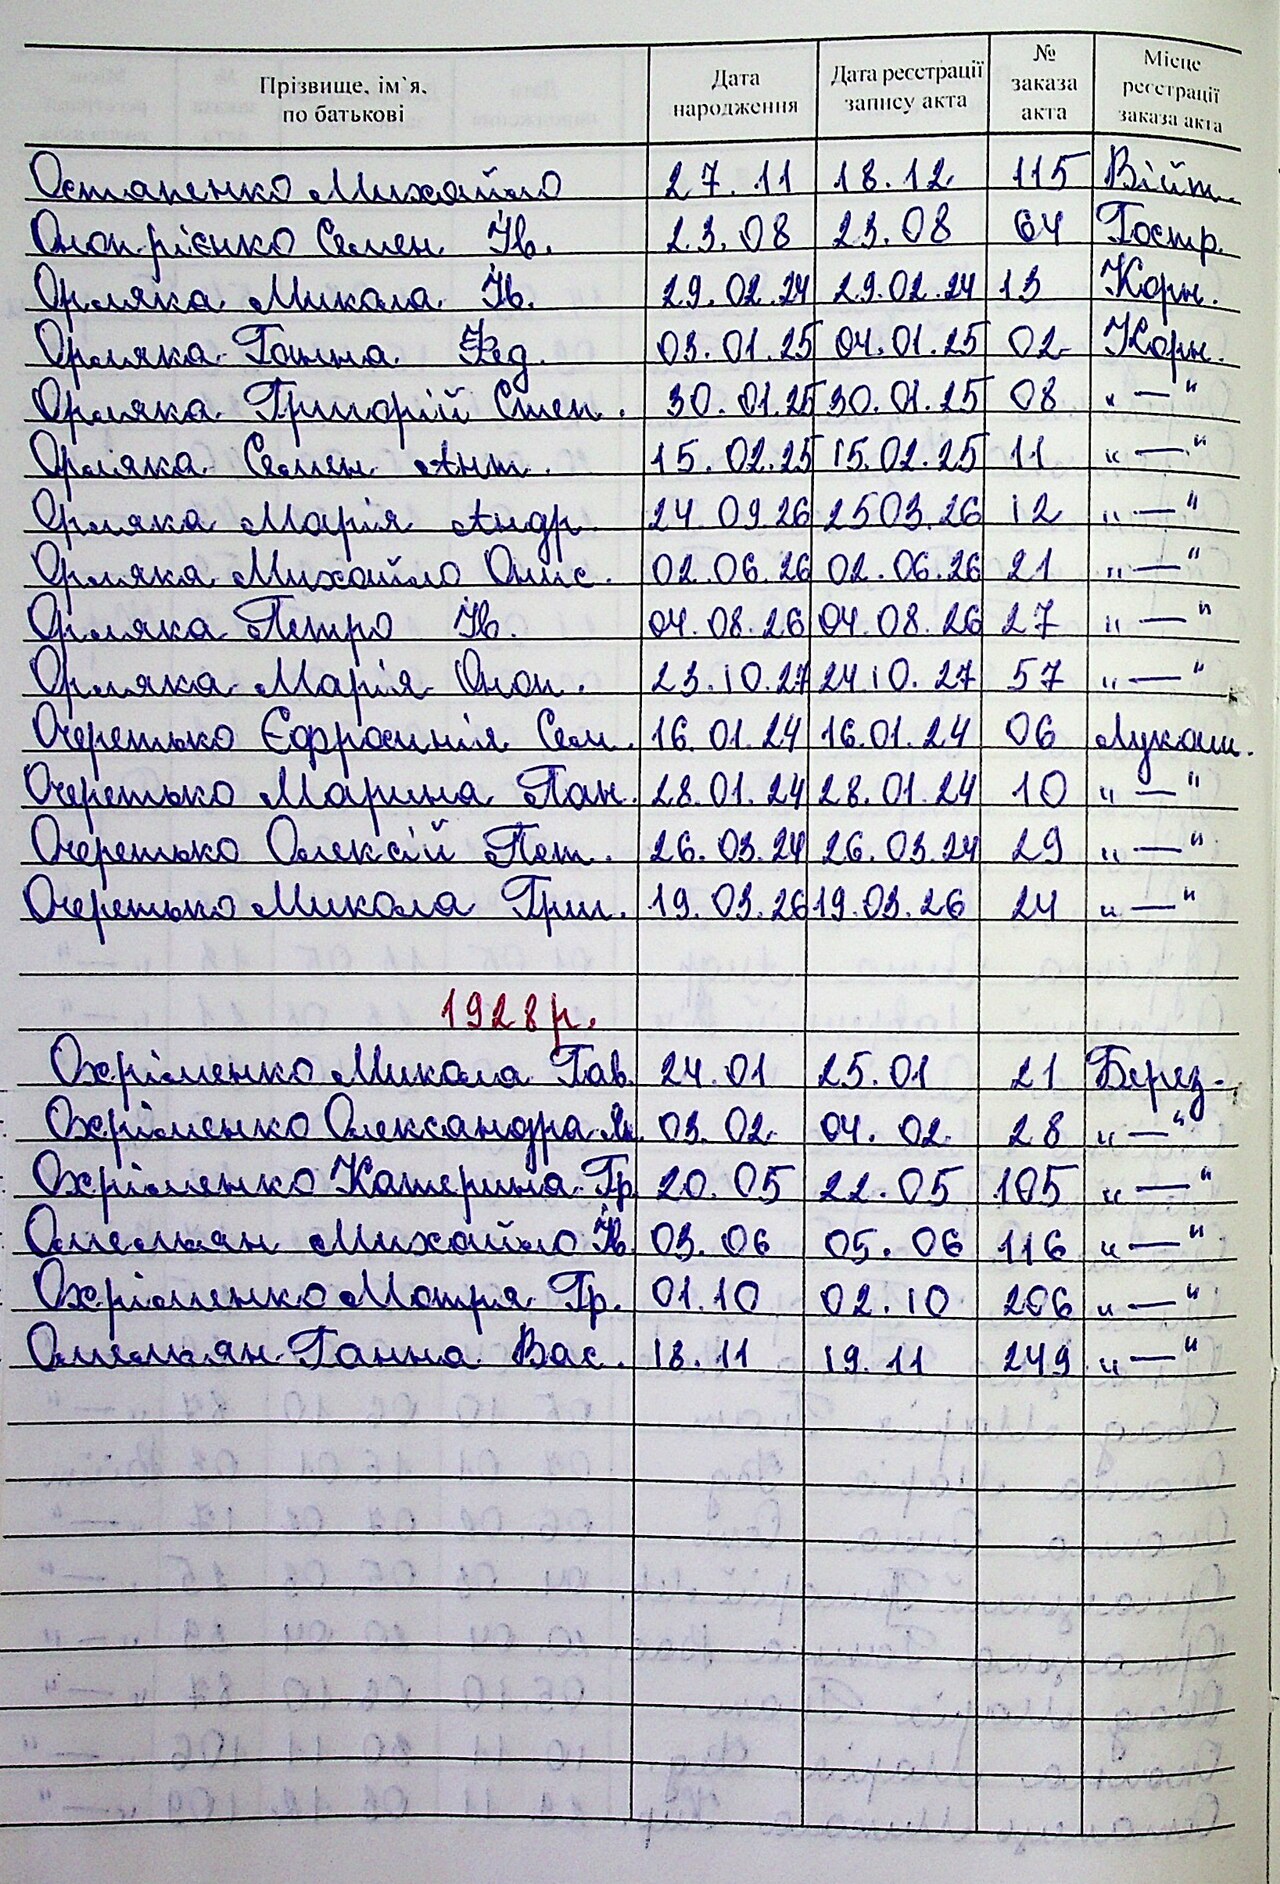 Прізвище, ім`я, по батькові | Дата народження | Дата реєстрації запису акта | № заказа акта | Місце реєстрації заказа акта
Остапенко Михайло 27.11 18.12 115 Війт.
Онопрієнко Семен Ів. 23.08 23.08 64 Гостр.
Орляка Микола Ів. 29.02.24 29.02.24 13 Корн.
Орляка Ганна Фед. 03.01.25 04.01.25 02 Корн.
Орляка Григорій Степ. 30.01.25 30.01.25 08 "—"
Орляка Семен Ант. 15.02.25 15.02.25 11 "—"
Орляка Марія Андр 24.09.26 25.03.26 12 "—"
Орляка Михайло Онис. 02.06.26 02.06.26 21 "—"
Орляка Петро Ів. 04.08.26 04.08.26 27 "—"
Орляка Марія Оноп. 23.10.27 24.10.27 57 "—"
Очеретько Єфросинія Сем. 16.01.24 16.01.24 06 Лукаш.
Очеретько Марина Пан. 28.01.24 28.01.24 10 "—"
Очеретько Олексій Пет. 26.03.24 26.03.24 29 "—"
Очеретько Микола Григ. 19.03.26 19.03.26 24 "—"
1928 р.
Охріменко Микола Гав. 24.01 25.01 21 Берез.
Охріменко Олександра Як. 03.02 04.02 28 "—"
Охріменко Катерина Гр. 20.05 22.05 105 "—"
Омельян Михайло Ів. 03.06 05.06 116 "—"
Охріменко Мотря Гр. 01.10 02.10 206 "—"
Омельян Ганна Вас. 18.11 19.11 249 "—"